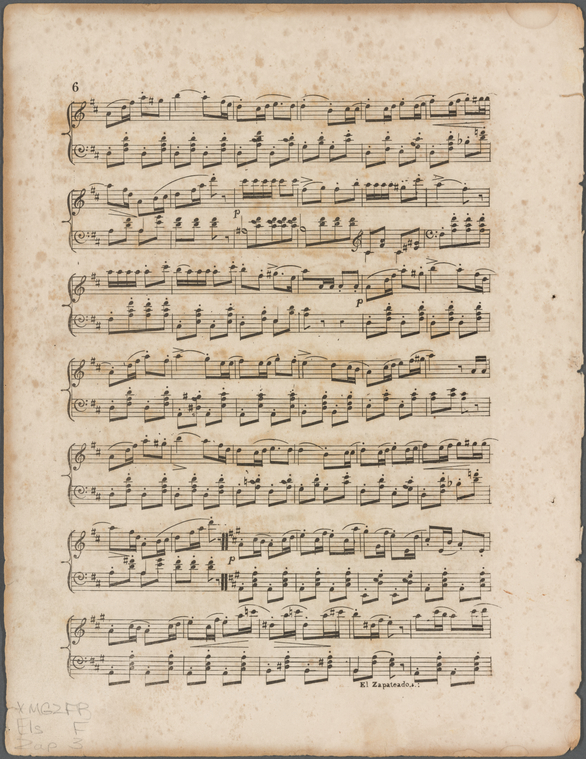 6
p
p
p
El Zapateado.
*MG2FB
Els F
Zap 3